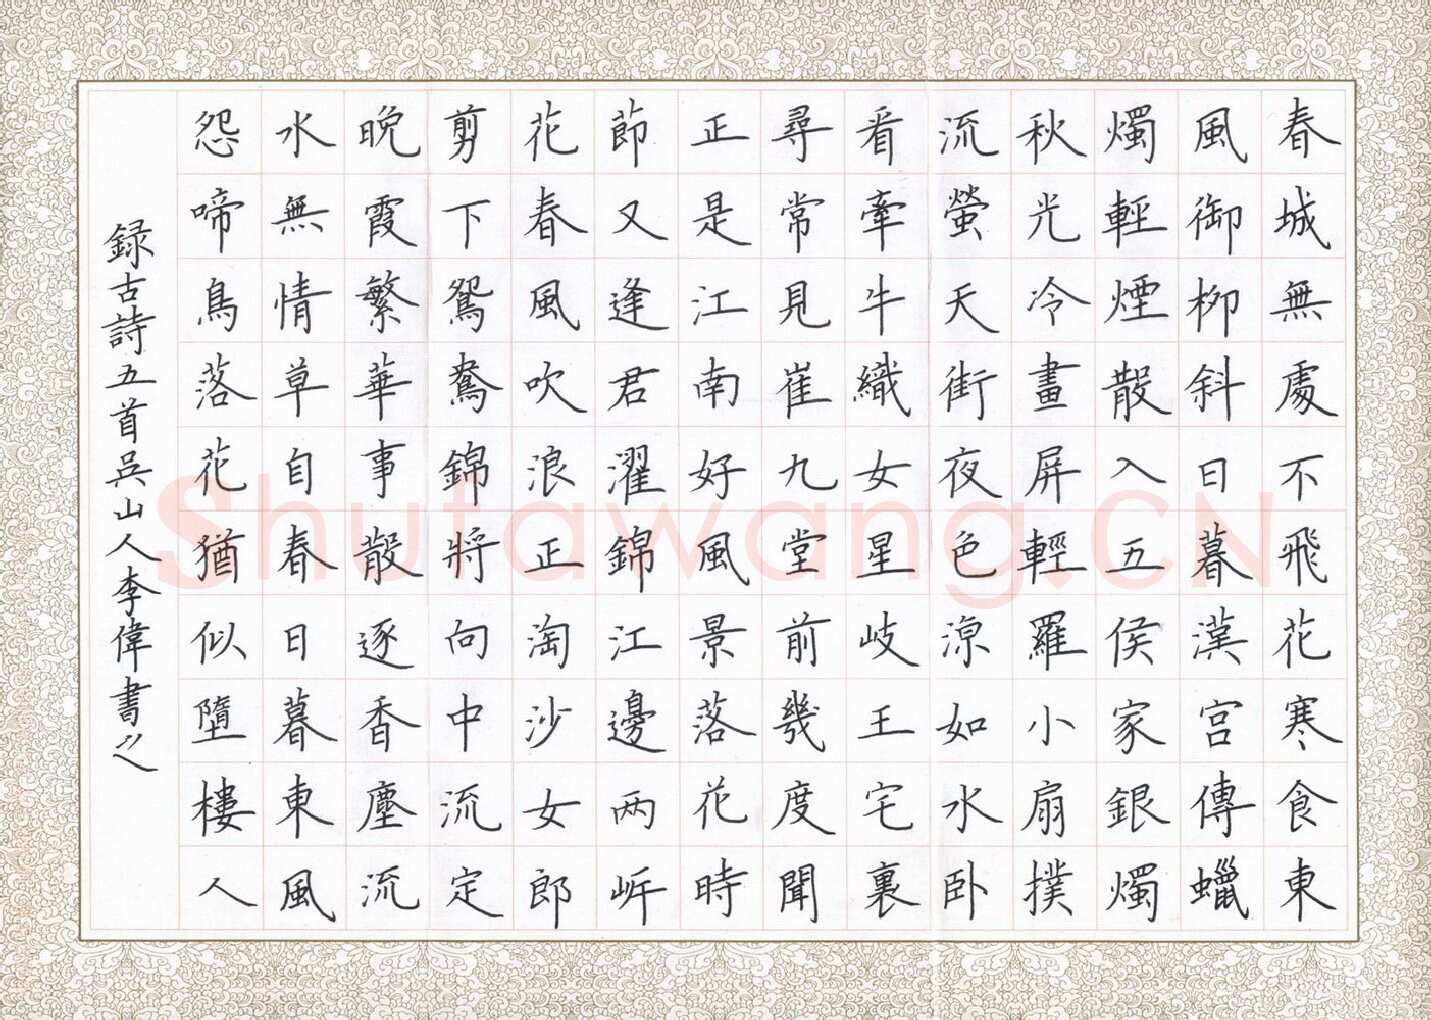 春城無處不飛花寒食東
風御柳斜日暮漢宮傳蠟
燭輕煙散入五侯家銀燭
秋光冷畫屏輕羅小扇撲
流螢天街夜色涼如水臥
看牽牛織女星岐王宅裏
尋常見崔九堂前幾度聞
正是江南好風景落花時
節又逢君濯錦江邊兩岍
花春風吹浪正淘沙女郎
剪下鴛鴦錦將向中流定
晚霞繁華事散逐香塵流
水無情草自春日暮東風
怨啼鳥落花猶似墮樓人
録古詩五首吳山人李偉書之
Shufawang.CN